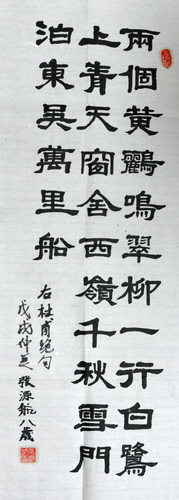 兩個黃鸝鳴翠柳一行白鷺
上青天窗含西嶺千秋雪門
泊東吳萬里船
右杜甫絕句
戊戌仲夏 張源航八歲